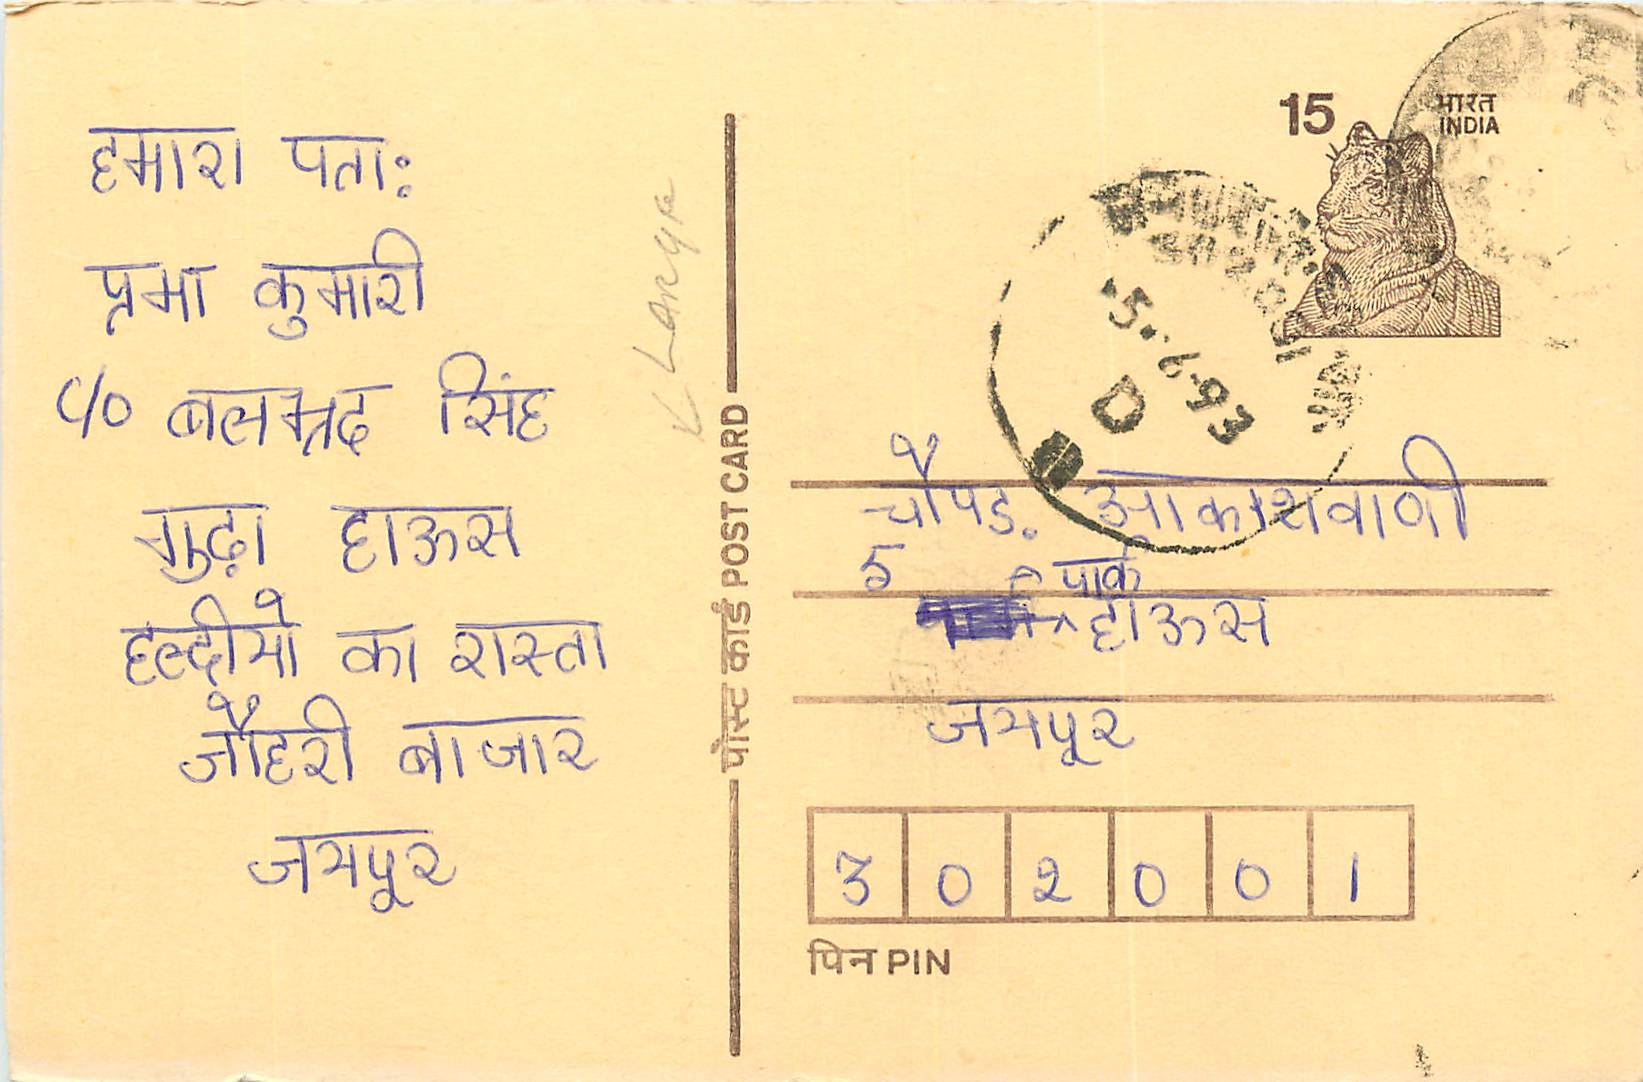 हमारा पताः
प्रभा कुमारी
C/o बलभद्र सिंह
गुढ़ा हाऊस
हल्दीयो का रास्ता
जौहरी बाजार
जयपूर
पोस्ट कार्ड POST CARD
15
भारत
INDIA
5.6.93
D
चौपड. आकाशवाणी
5 पार्क
हाऊस
जयपूर
302001
पिन PIN